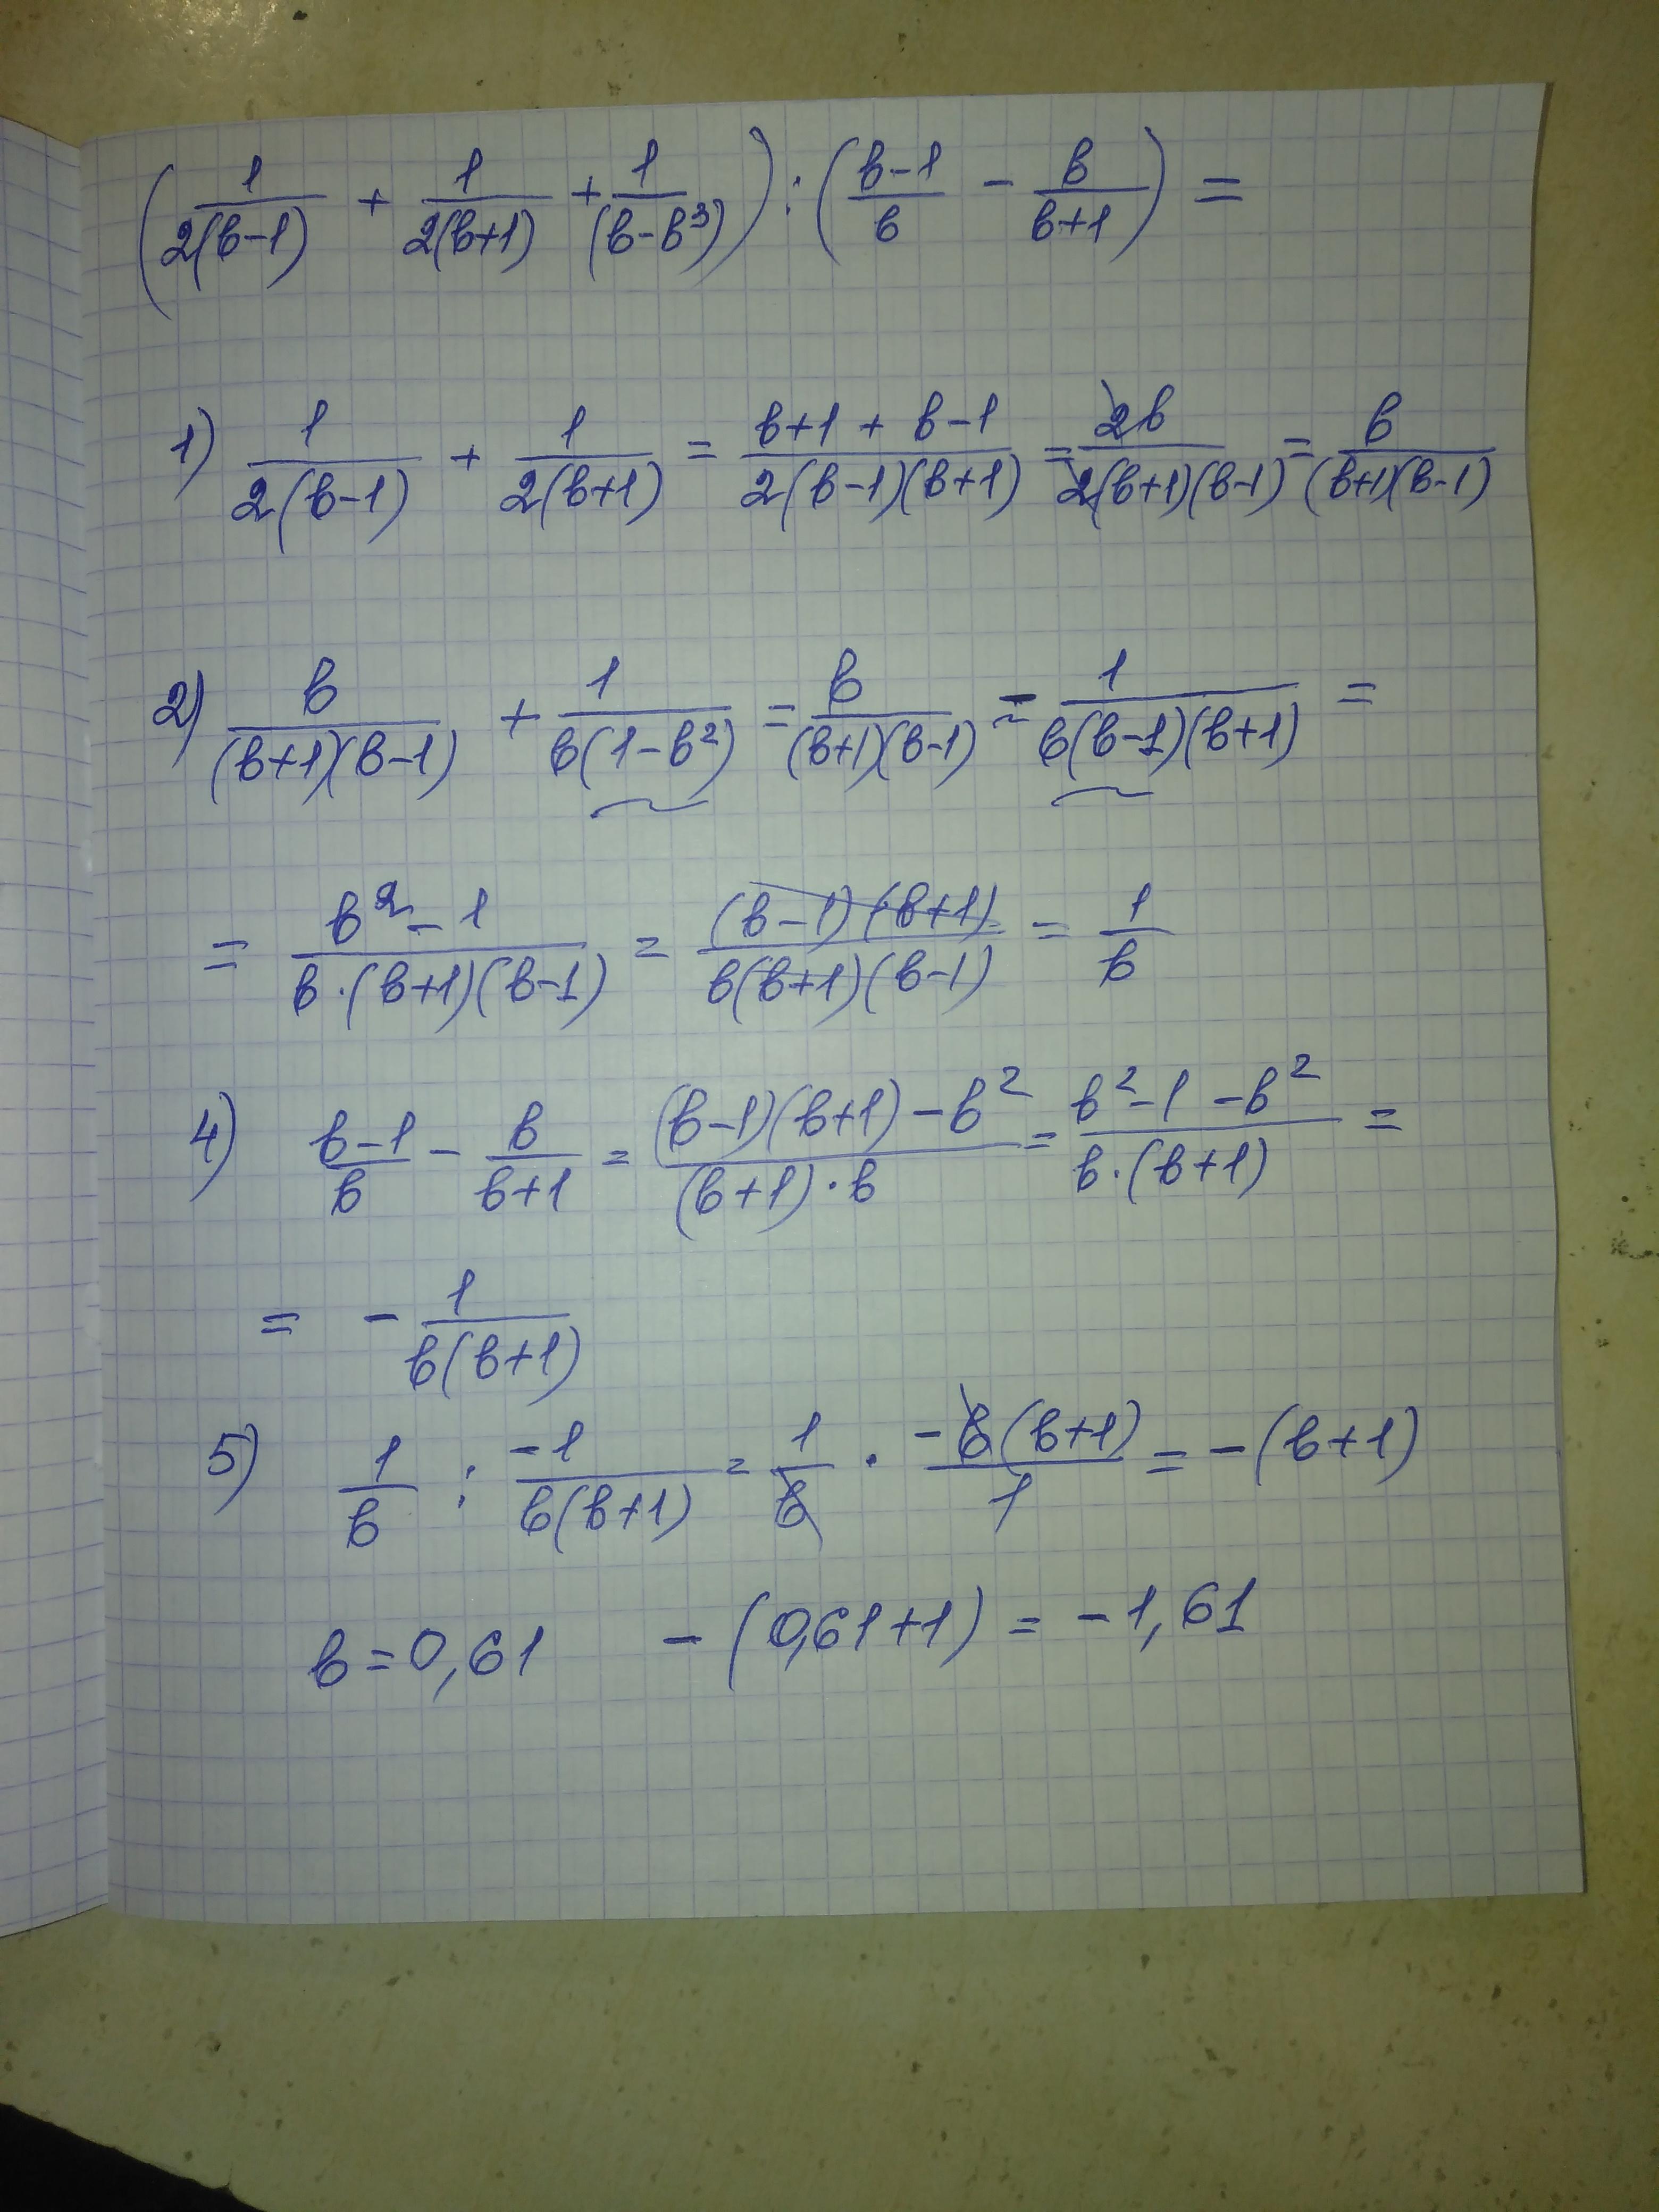 (1/(2(b-1)) + 1/(2(b+1)) + 1/(b-b³)) : ((b-1)/b - b/(b+1)) =
1) 1/(2(b-1)) + 1/(2(b+1)) = (b+1 + b-1)/(2(b-1)(b+1)) = 2b/(2(b+1)(b-1)) = b/((b+1)(b-1))
2) b/((b+1)(b-1)) + 1/(b(1-b²)) = b/((b+1)(b-1)) - 1/(b(b-1)(b+1)) =
= (b²-1)/(b·(b+1)(b-1)) = ((b-1)(b+1))/(b(b+1)(b-1)) = 1/b
4) (b-1)/b - b/(b+1) = ((b-1)(b+1)-b²)/((b+1)·b) = (b²-1-b²)/(b·(b+1)) =
= - 1/(b(b+1))
5) 1/b : -1/(b(b+1)) = 1/b · -b(b+1)/1 = -(b+1)
b=0,61 -(0,61+1) = -1,61